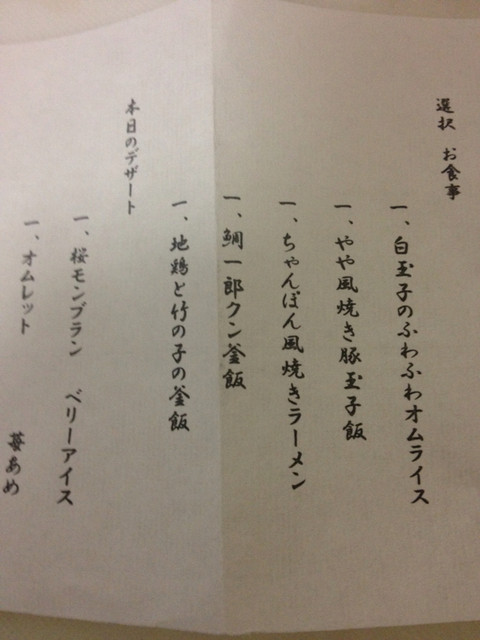 選択 お食事
一、白玉子のふわふわオムライス
一、やや風焼き豚玉子飯
一、ちゃんぽん風焼きラーメン
一、鯛一郎クン釜飯
一、地鶏と竹の子の釜飯
本日のデザート
一、桜モンブラン ベリーアイス
一、オムレット 苺あめ